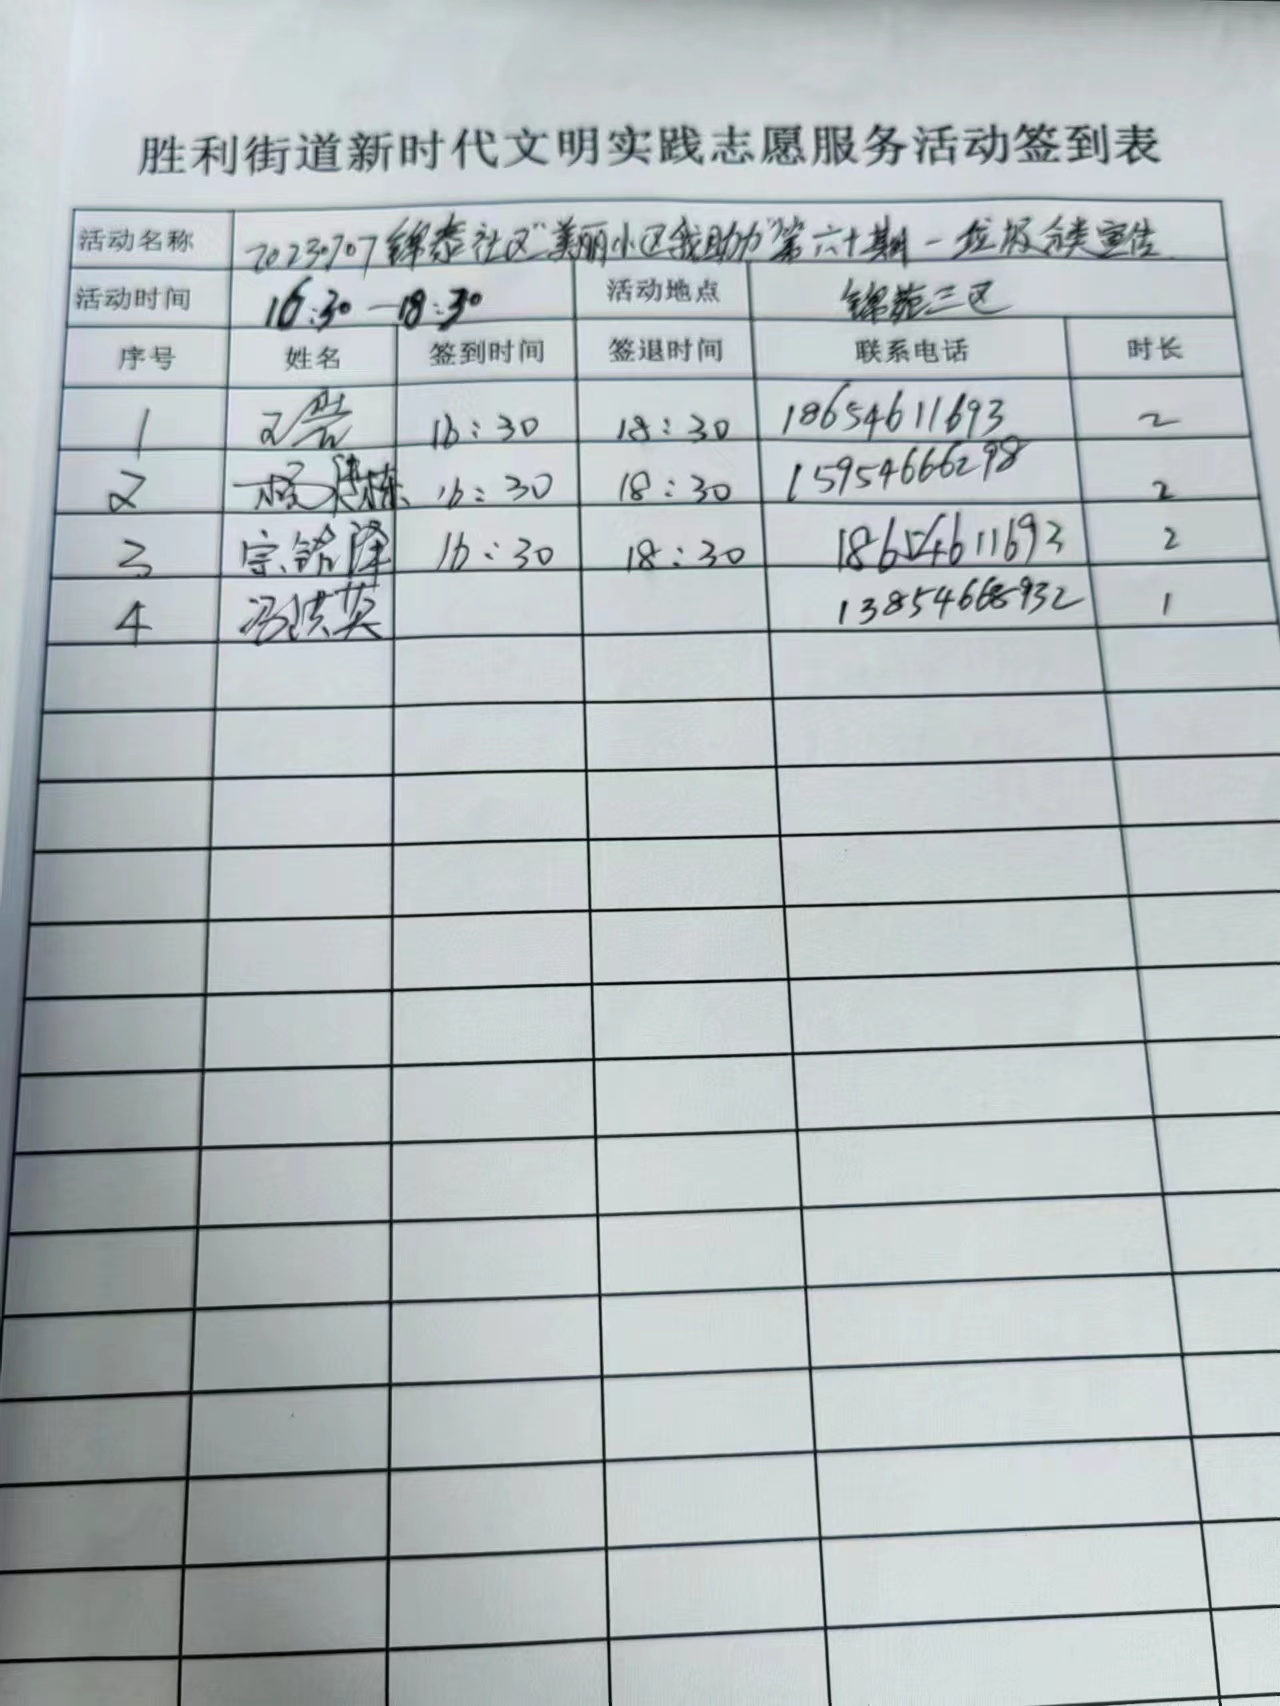 胜利街道新时代文明实践志愿服务活动签到表
活动名称 20230707锦泰社区"美丽小区我助力"第六十期-垃圾分类宣传
活动时间 16:30-18:30 活动地点 锦苑三区
序号 姓名 签到时间 签退时间 联系电话 时长
1 16:30 18:30 18654611693 2
2 杨 16:30 18:30 15954666298 2
3 宗铭泽 16:30 18:30 18654611693 2
4 冯洪英 1